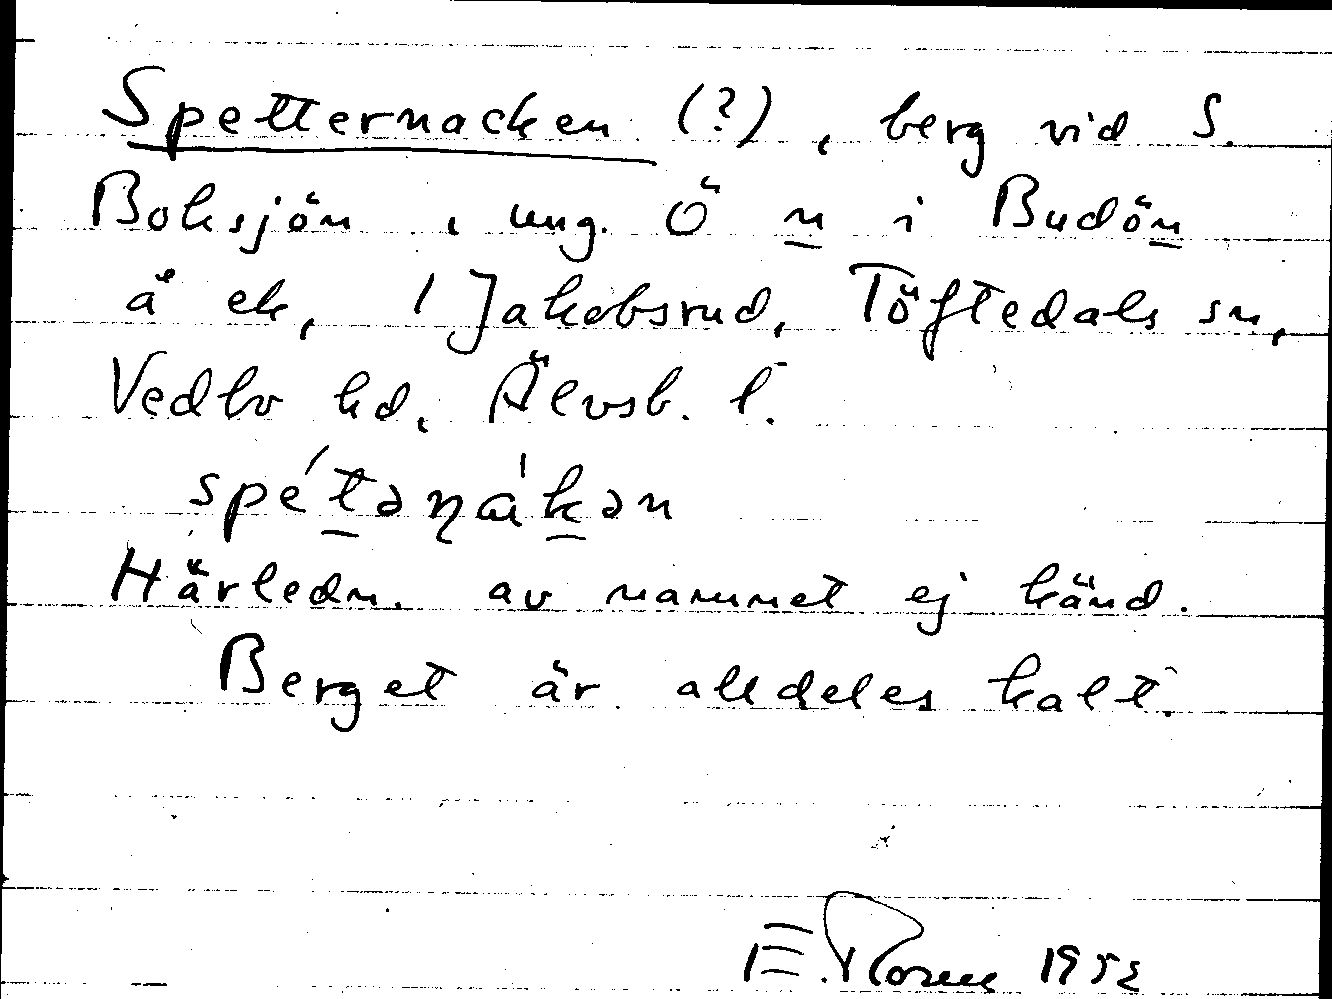 Spetternacken (?), berg vid S.
Boksjön, ung. Ö n i Budön
å ek, 1 Jakobsrud, Töftedals sn,
Vedbo hd, Älvsb. l.
spétəɳákən
Härledn. av namnet ej känd.
Berget är alldeles kalt.
E. 1952